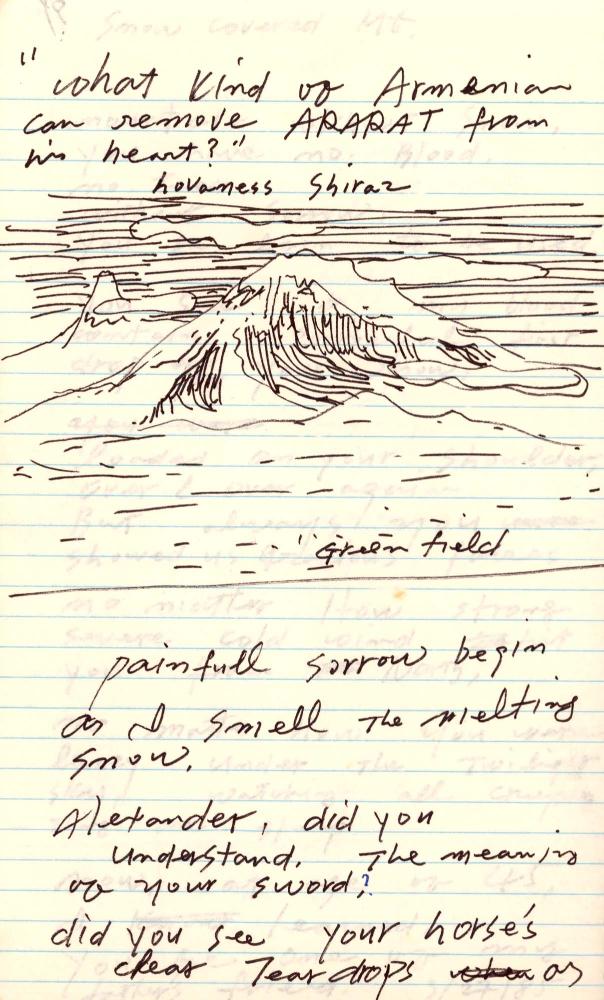 "What kind of Armenian
can remove ARARAT from
his heart?"
hovaness Shiraz
"Green field
painfull sorrow begin
as I smell the melting
snow.
Alexander, did you
understand. The meanin
of your sword?
did you see your horse's
clear Tear drops as